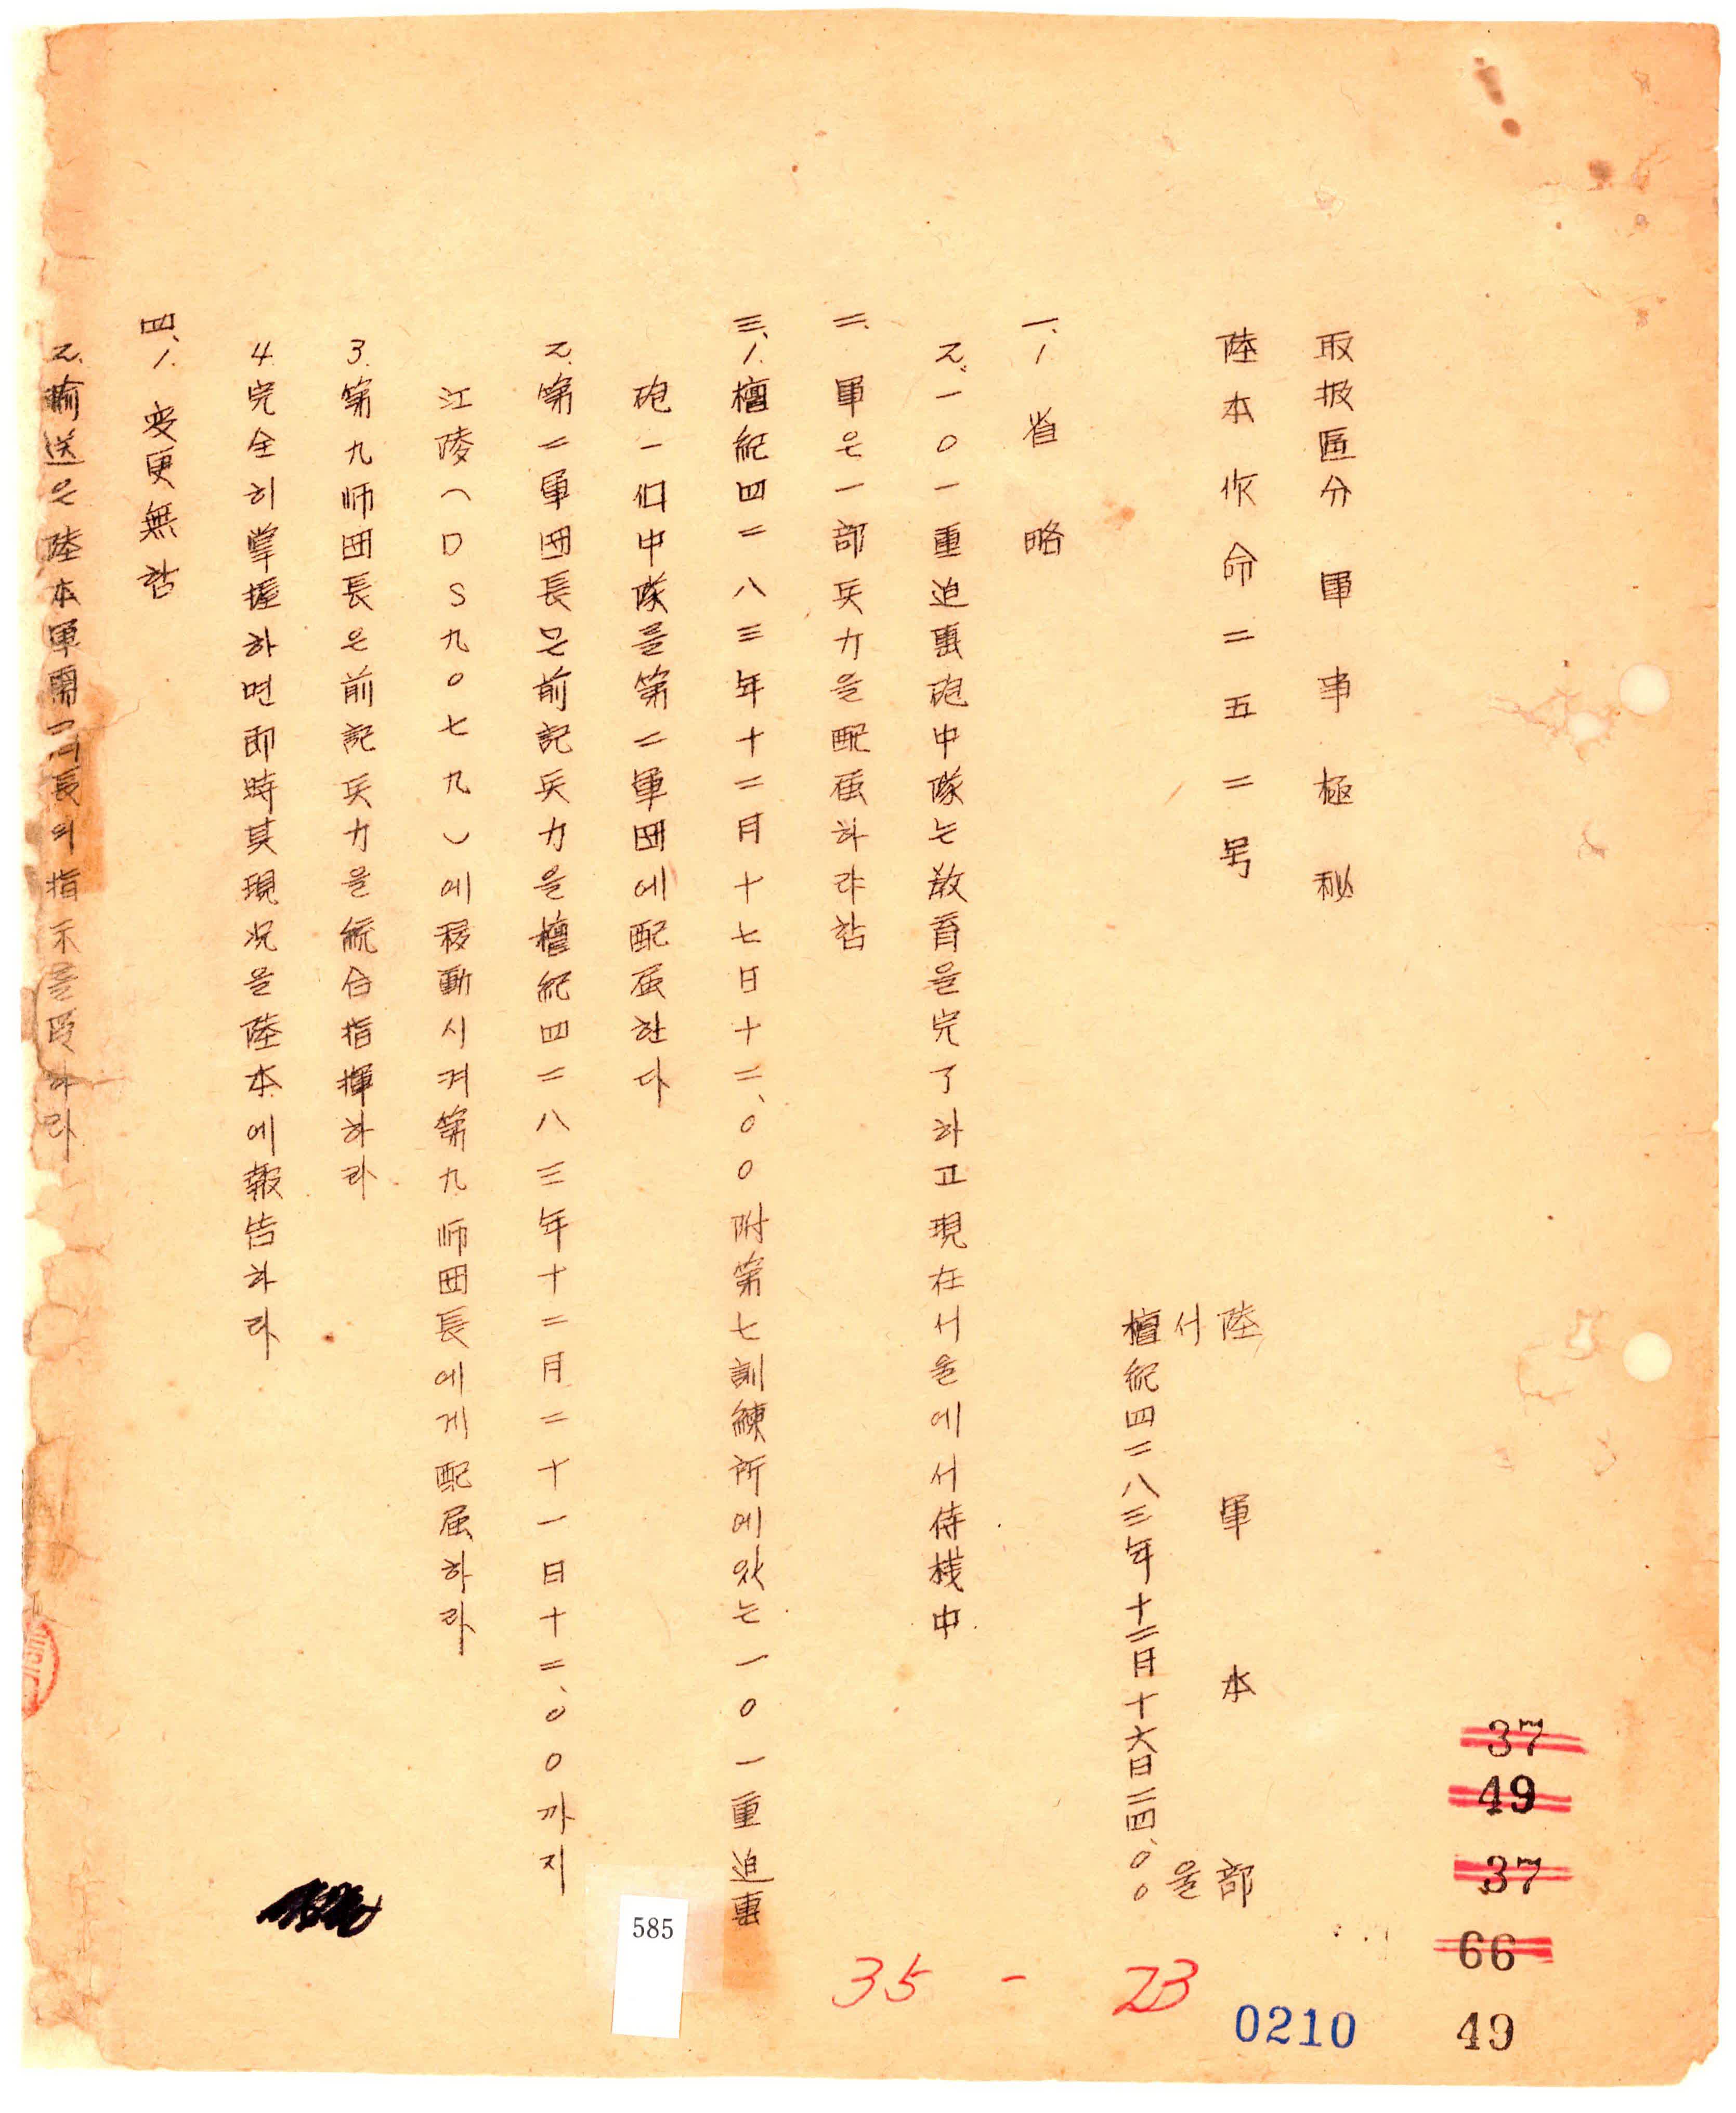 取扱區分 軍事極秘
陸本作命二五二号
陸軍本部
서울
檀紀四二八三年十二月十六日二四、〇〇
一、1. 省略
2. 一〇一重迫擊砲中隊는敎育을完了하고現在서울에서待機中
二、軍은一部兵力을配屬하랴함
三、1. 檀紀四二八三年十二月十七日十二、〇〇附第七訓練所에있는一〇一重迫擊
砲一個中隊를第二軍團에配屬한다
2. 第二軍團長은前記兵力을檀紀四二八三年十二月二十一日十二、〇〇까지
江陵(DS九〇七九)에移動시켜第九師團長에게配屬하라
3. 第九師團長은前記兵力을統合指揮하라
4. 完全히掌握하면即時其現況을陸本에報告하라
四、1. 変更無함
2. 輸送은陸本軍需局長의指示를受하라
37
49
37
66
49
0210
35 - 23
585